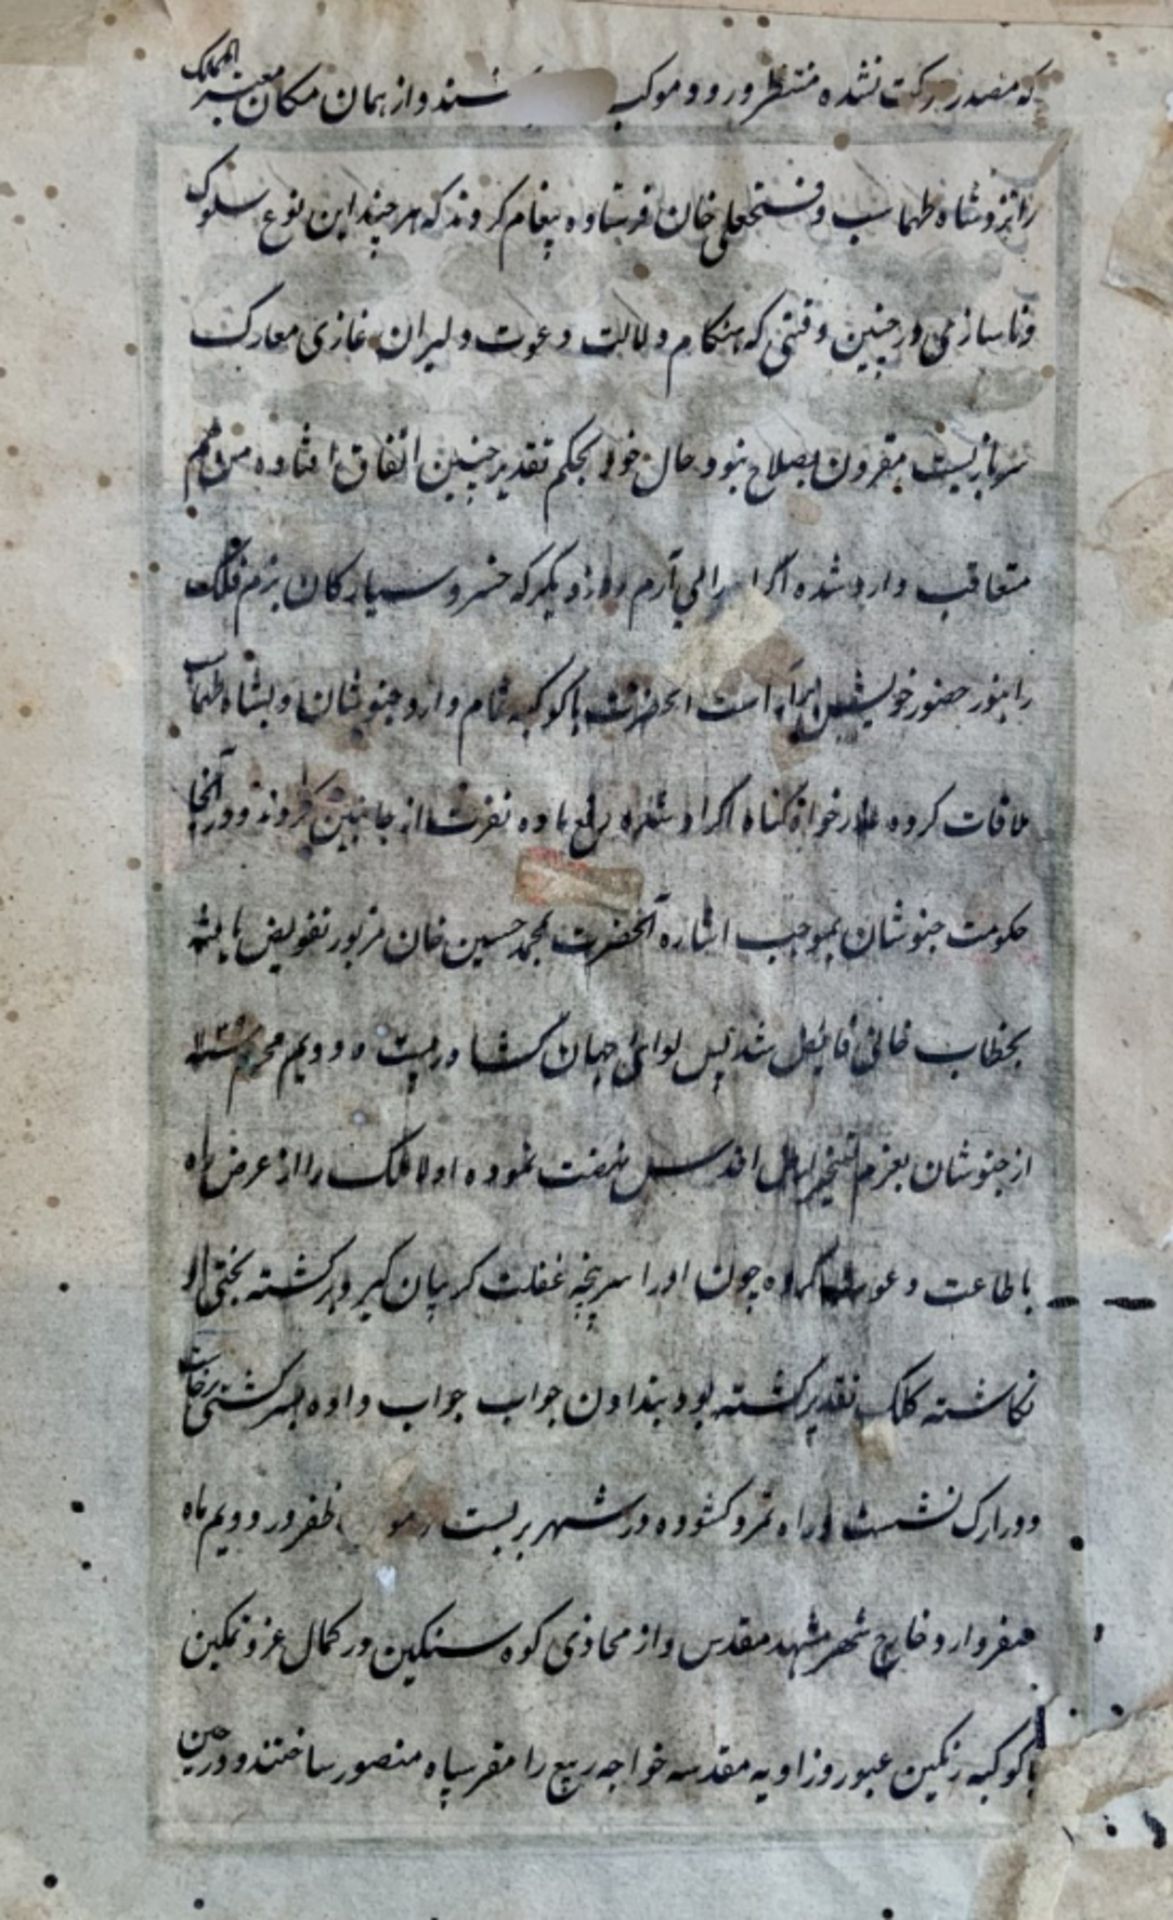 که مصدر حرکت نشده منتظر ورود موکب شند و از همان مکان معیر الممالک
را نزد شاه طهماسب و فتحعلی خان فرستاده پیغام کردند که هر چند این نوع سلوک
و ناسازی در چنین وقتی که هنگام دلالت و دعوت دلیران غازی معارک
سربازیست مقرون بصلاح نبود حال خود بحکم تقدیر چنین اتفاق افتاده من هم
متعاقب وارد شده روز دیگر که خسرو سیارکان بزم فلک
را بنور حضور خویش آراست آنحضرت با کوکبه تمام وارد خبوشان و بشاه طهماسب
ملاقات کرده عذرخواه کناه اکراد شده رفع ماده نفرت از جانبین کردند و در آنجا
حکومت خبوشان بموجب اشاره آنحضرت بمحمد حسین خان مزبور تفویض یافته
بخطاب خانی شد پس لوای جهان کشا در بیست و دویم محرم
از خبوشان بعزم تسخیر اقدس نهضت نموده اولا ملک را از عرض راه
باطاعت دعوت کرده چون او را سرپنجه غفلت کریبان کیر و برکشته بختی او
نکاشته کلک تقدیر کشته بود بندادن جواب جواب داده بسرکشتی برخاست
و در ارک نشست و راه تمرد کشوده در شهر بربست ظفر ورود دویم ماه
صفر وارد خارج شهر مشهد مقدس و از محاذی کوه سنکین در کمال عز و تمکین
با کوکبه رنکین عبور و زاویه مقدسه خواجه ربیع را مقر سپاه منصور ساختند و در حین